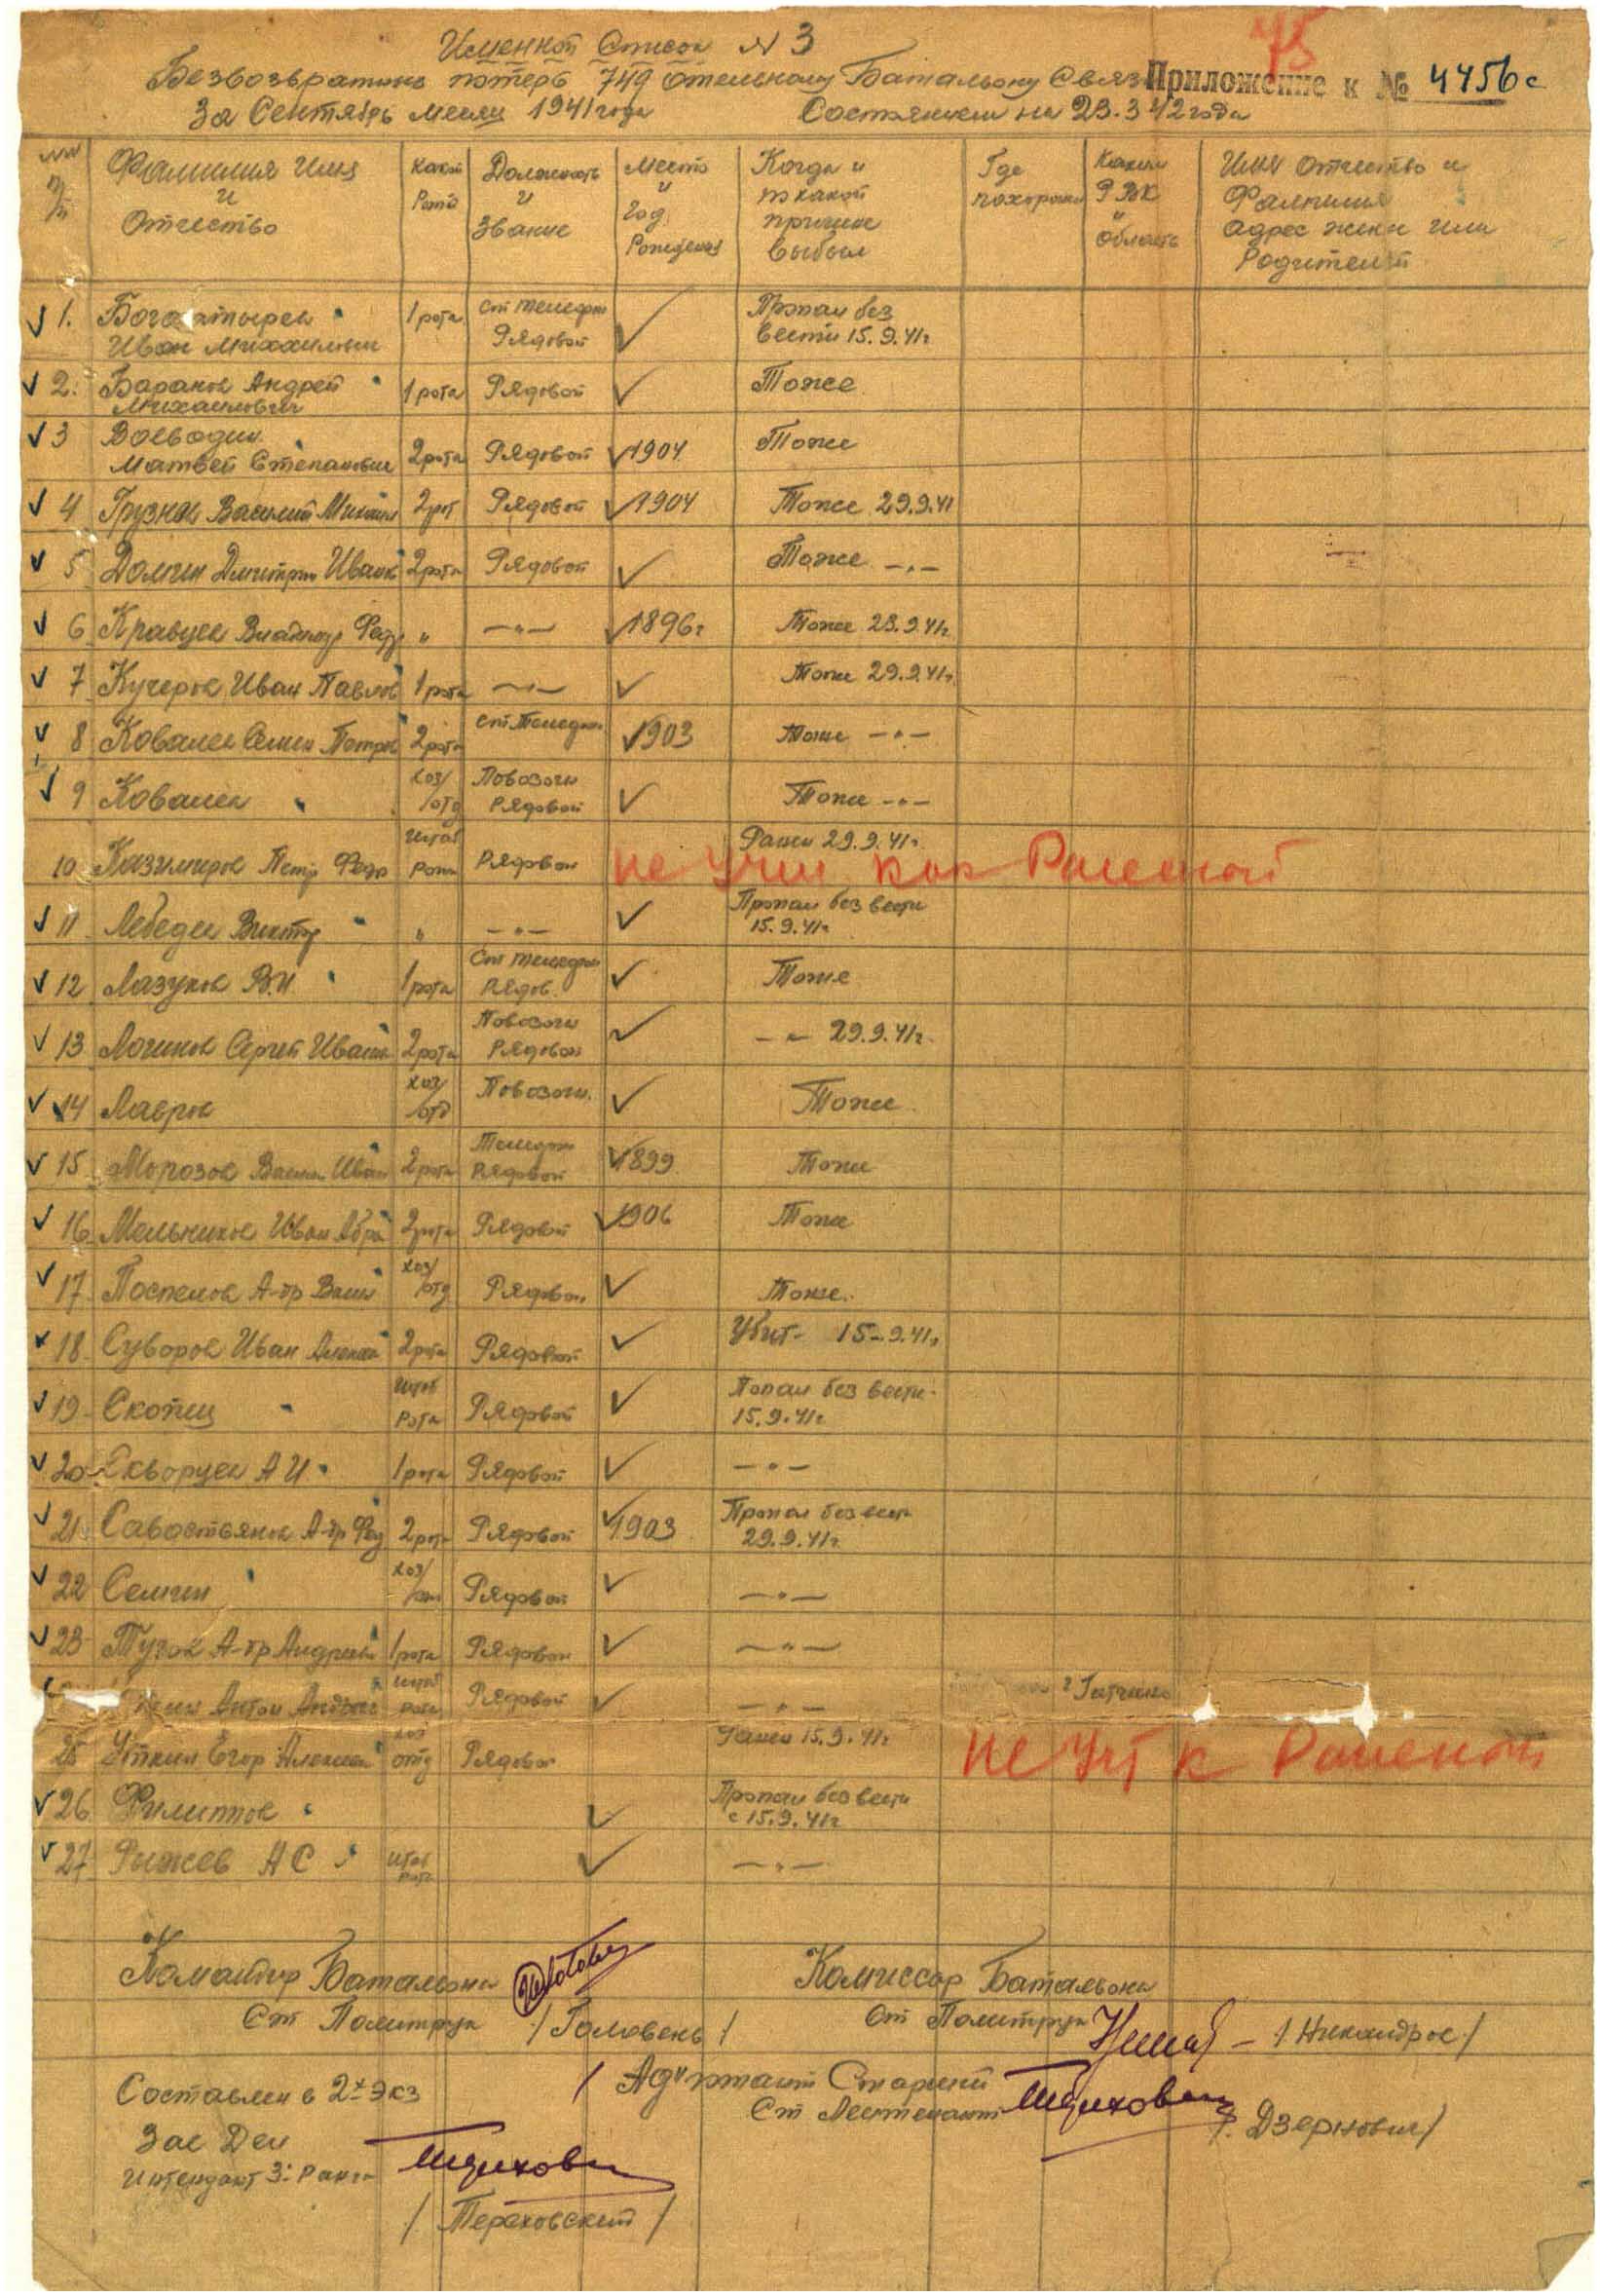 75
Именной Список № 3
Безвозвратных потерь 749 отдельному Батальону Связи Приложение к № 4456с
За Сентябрь месяц 1941 года Состоянием на 23.3 42 года
№№ п/п Фамилия Имя и Отчество Какой Роты Должность и Звание Место и Год Рождения Когда и по какой причине выбыл Где похоронен Каким РВК и Область Имя Отчество и Фамилия адрес жены или Родителей
1. Богатырев Иван Михайлович 1 рота Ст телефон Рядовой Пропал без вести 15.9.41г
2. Баранов Андрей Михайлович 1 рота Рядовой Тоже
3 Воеводин Матвей Степанович 2 рота Рядовой 1904 Тоже
4 Грузнов Василий Михайл 2 рот Рядовой 1904 Тоже 29.9.41
5 Долгин Дмитрий Иванов 2 рота Рядовой Тоже —"—
6 Кравцев Владимир Фед " —"— 1896г Тоже 23.9.41г
7 Кучеров Иван Павлов 1 рота —"— Тоже 29.9.41г.
8 Ковалев Семен Петров 2 рота Ст Телефон 1903 Тоже —"—
9 Ковалев " хоз/отд Повозочн Рядовой Тоже —"—
10 Казимиров Петр Федр Штаб Рота Рядовой Ранен 29.9.41г. не Учи как Раненой
11 Лебедев Виктор " —"— Пропал без вести 15.9.41г
12 Лазуков В.И. 1 рота Ст телефон Рядов. Тоже
13 Логинов Сергей Иванов 2 рота Повозочн Рядовой —"— 29.9.41г.
14 Лавров хоз/отд Повозочн. Тоже
15 Морозов Васил Иван 2 рота Телефон Рядовой 1899 Тоже
16 Мельников Иван Абра 2 рота Рядовой 1906 Тоже
17 Поспелов А-др Васил хоз/отд Рядовой Тоже.
18 Суворов Иван Алексе 2 рота Рядовой Убит 15-9.41г
19 Скопец Штаб Рота Рядовой Попал без вести 15.9.41г
20 Скворцев А И 1 рота Рядовой —"—
21 Савостьянов А-др Фед 2 рота Рядовой 1903 Пропал без вести 29.9.41г
22 Семгин хоз/отд Рядовой —"—
23 Тугов А-др Андреев 1 рота Рядовой —"—
Антон Андре Штаб рота Рядовой —"— г Гатчина
25 Уткин Егор Алексее хоз отд Рядовой Ранен 15.9.41г не Уч к Раненой
26 Филиппов Пропал без вести с 15.9.41г
27 Рыжев А С Штаб рота —"—
Командир Батальона Комиссар Батальона
Ст Политрук /Головень/ Ст Политрук /Никандров/
Составлен в 2х Экз / Адъютант Старший
Ст Лейтенант /Дзернович/
Зав Дел
Интендант 3: Ранга
/Тереховский/